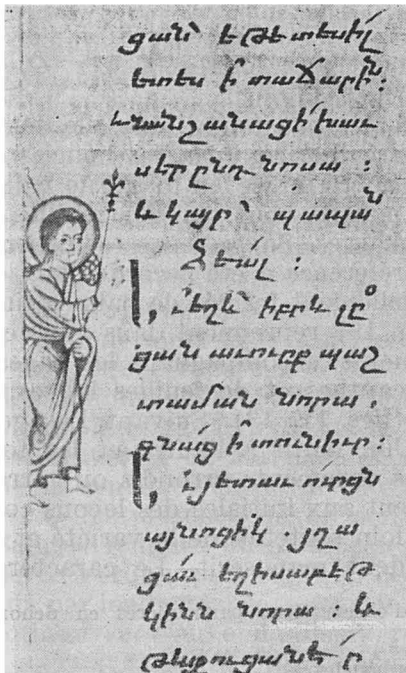 ցան՝ եթէ տեսիլ
ետես ի տաճարին։
և նա նշանացի խաւ
սէր ընդ նոսա։
և կայր՝ պապան
ձեալ։
Եւ եղև՝ իբրև լը
ցան աւուրք պաշ
տաման նորա.
գնաց ի տուն իւր։
Եւ յետ աւուրցն
այնոցիկ. յղա
ցաւ եղիսաբեթ
կինն նորա։ և
թաքուցանէր